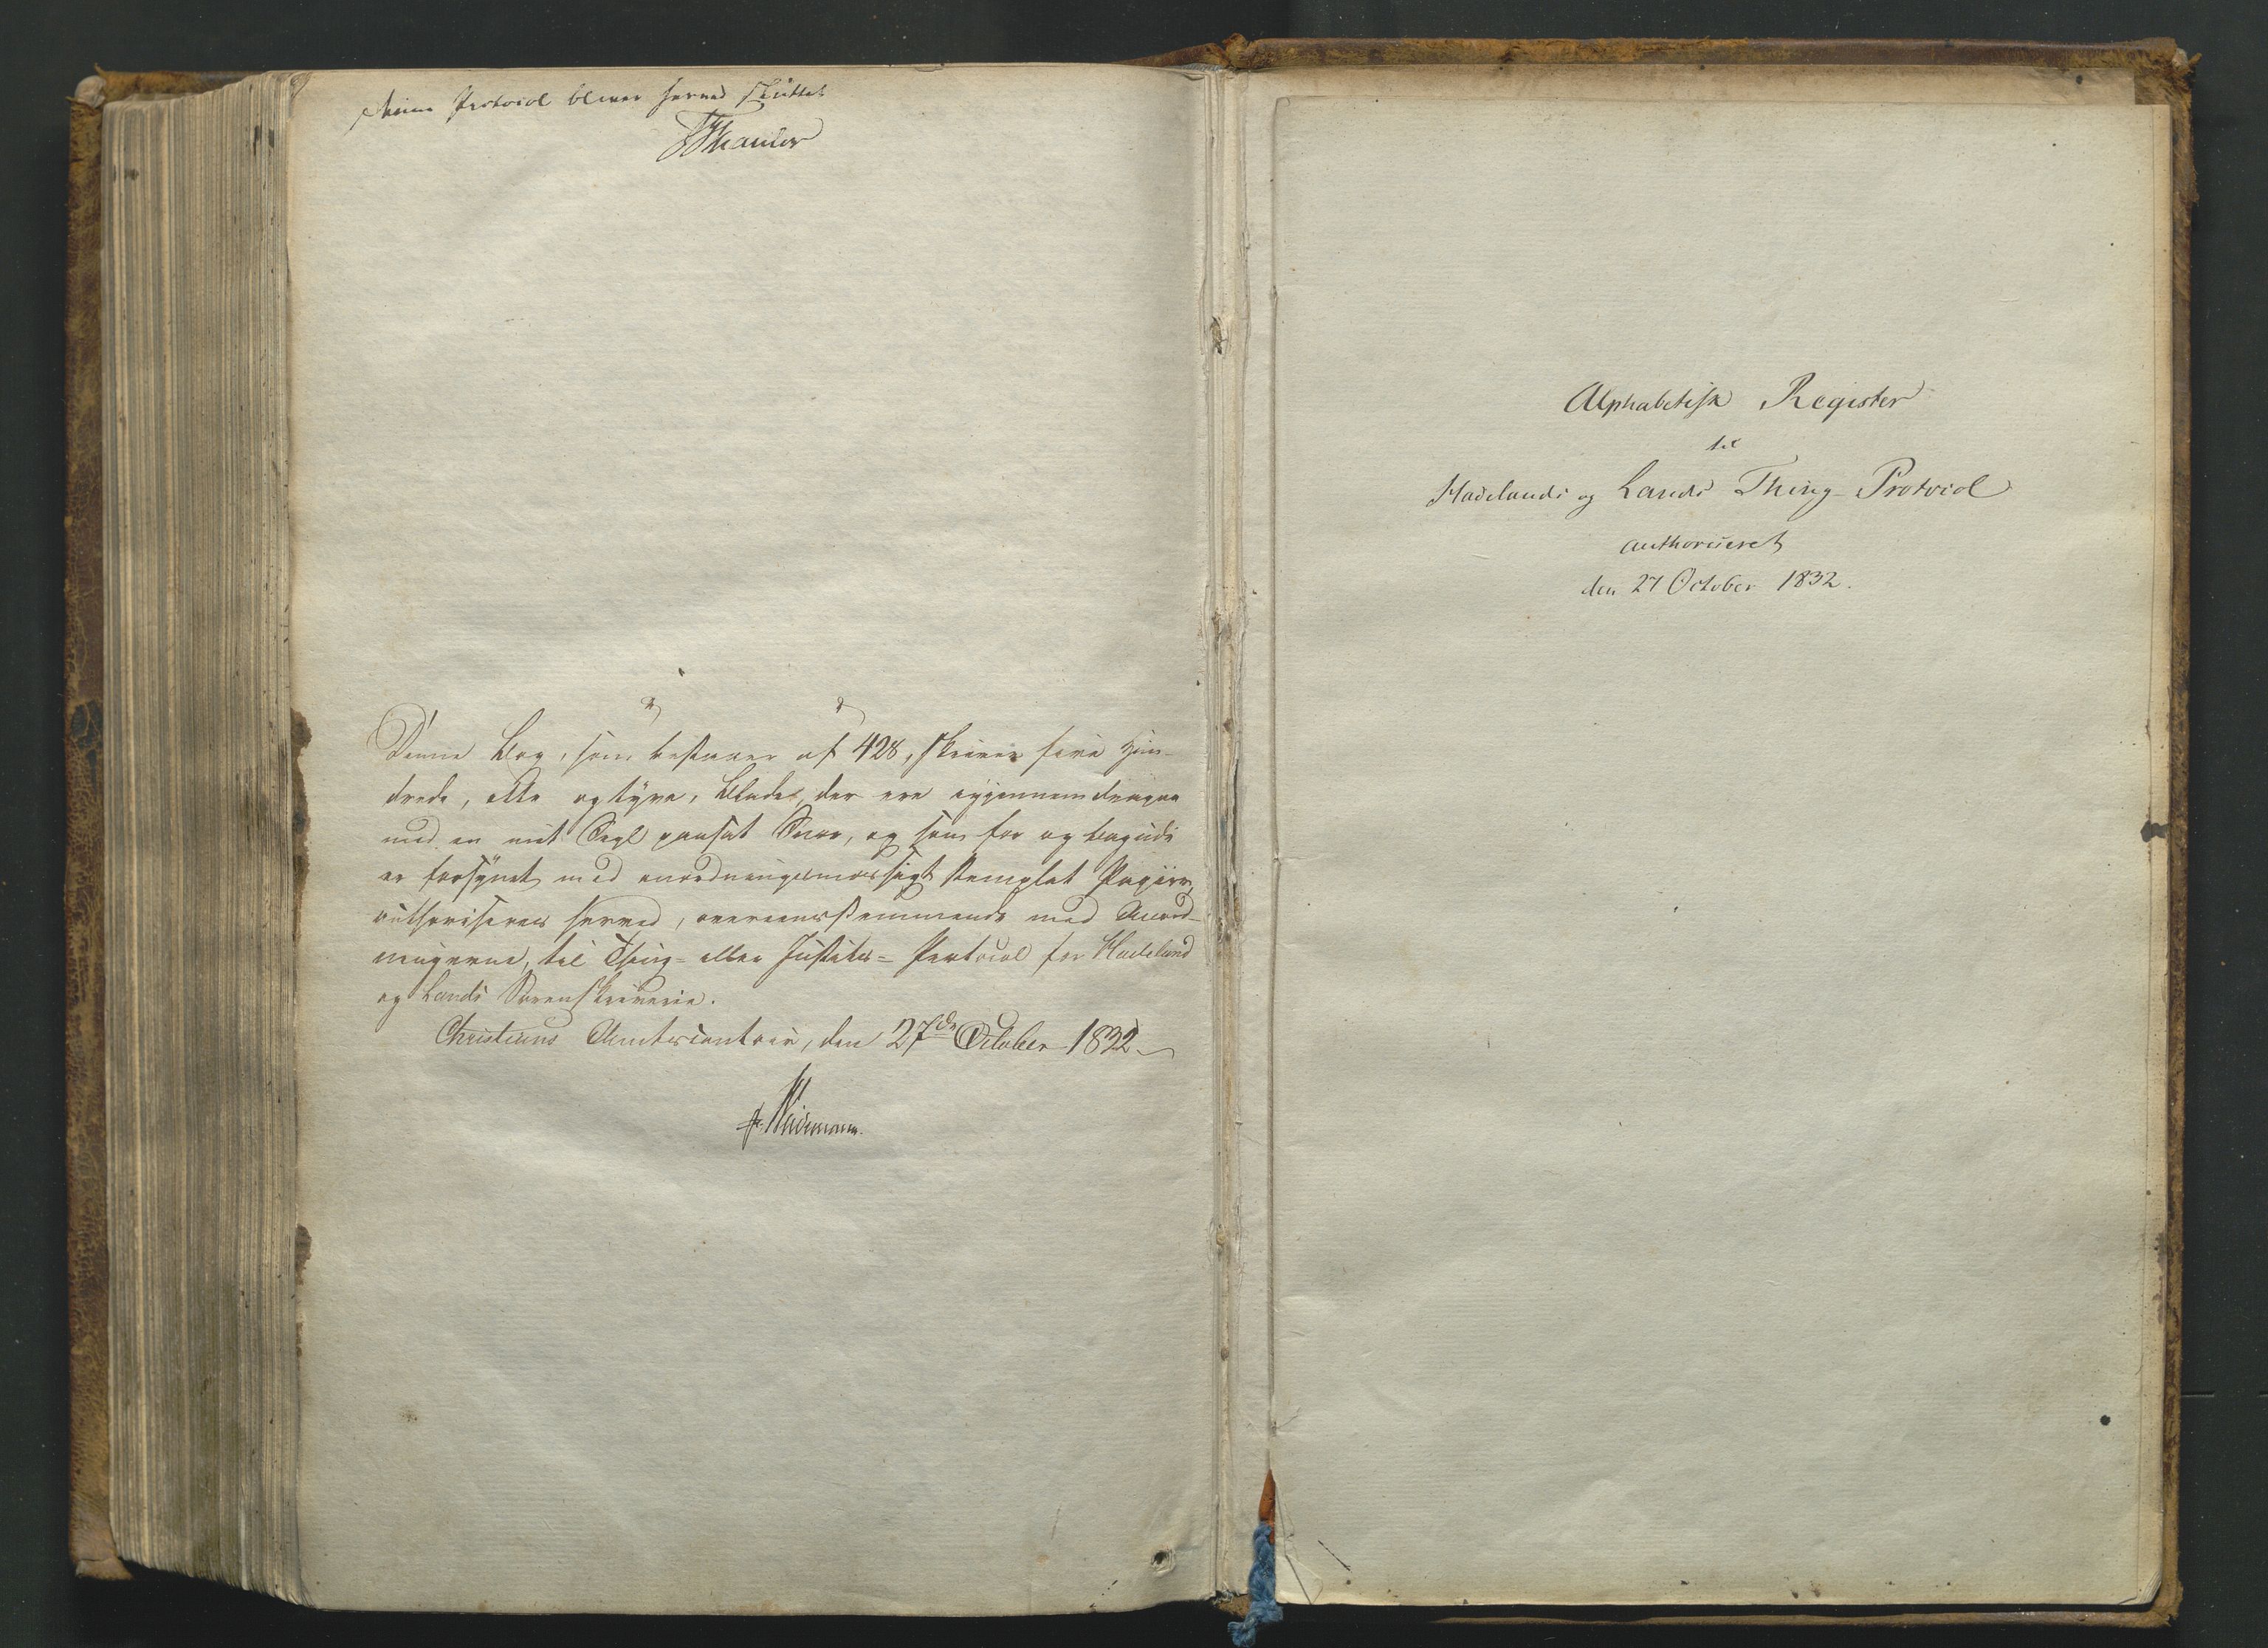 denne Protocol bliver herved sluttet
Thaulow
Denne Bog, som bestaaer af 428, skriver fire Hun-
drede, otte og tyve, Blade, der ere igjennemdragne
med en mit Segl paasat Snor, og som for og bagude
er forsynet med anordningsmæssigt stemplet Papiir,
authoriseres herved, overeensstemmende med Anord-
ningerne, til Thing- eller Justits- Protocol for Hadeland
og Lands Sorenskriverie.
Christians Amtscontoir, den 27de October 1832.
Weidemann.
Alphabetisk Register
til
Hadelands og Lands Thing-Protocol
authoriseret
den 27 October 1832.